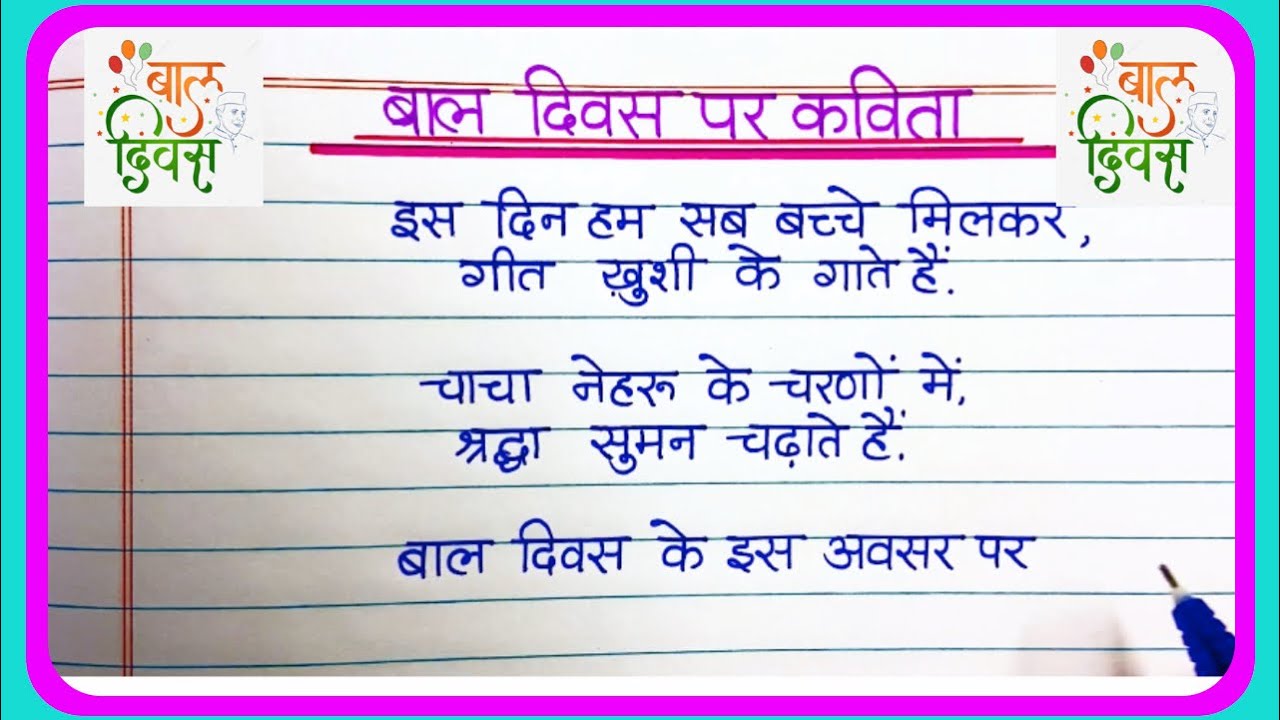 बाल
दिवस
बाल दिवस पर कविता
बाल
दिवस
इस दिन हम सब बच्चे मिलकर,
गीत ख़ुशी के गाते हैं.
चाचा नेहरू के चरणों में,
श्रद्धा सुमन चढ़ाते हैं.
बाल दिवस के इस अवसर पर